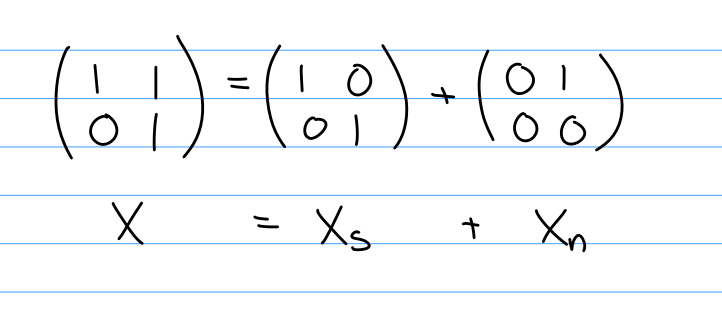 (1 1) = (1 0) + (0 1)
(0 1)   (0 1)   (0 0)
X = Xₛ + Xₙ